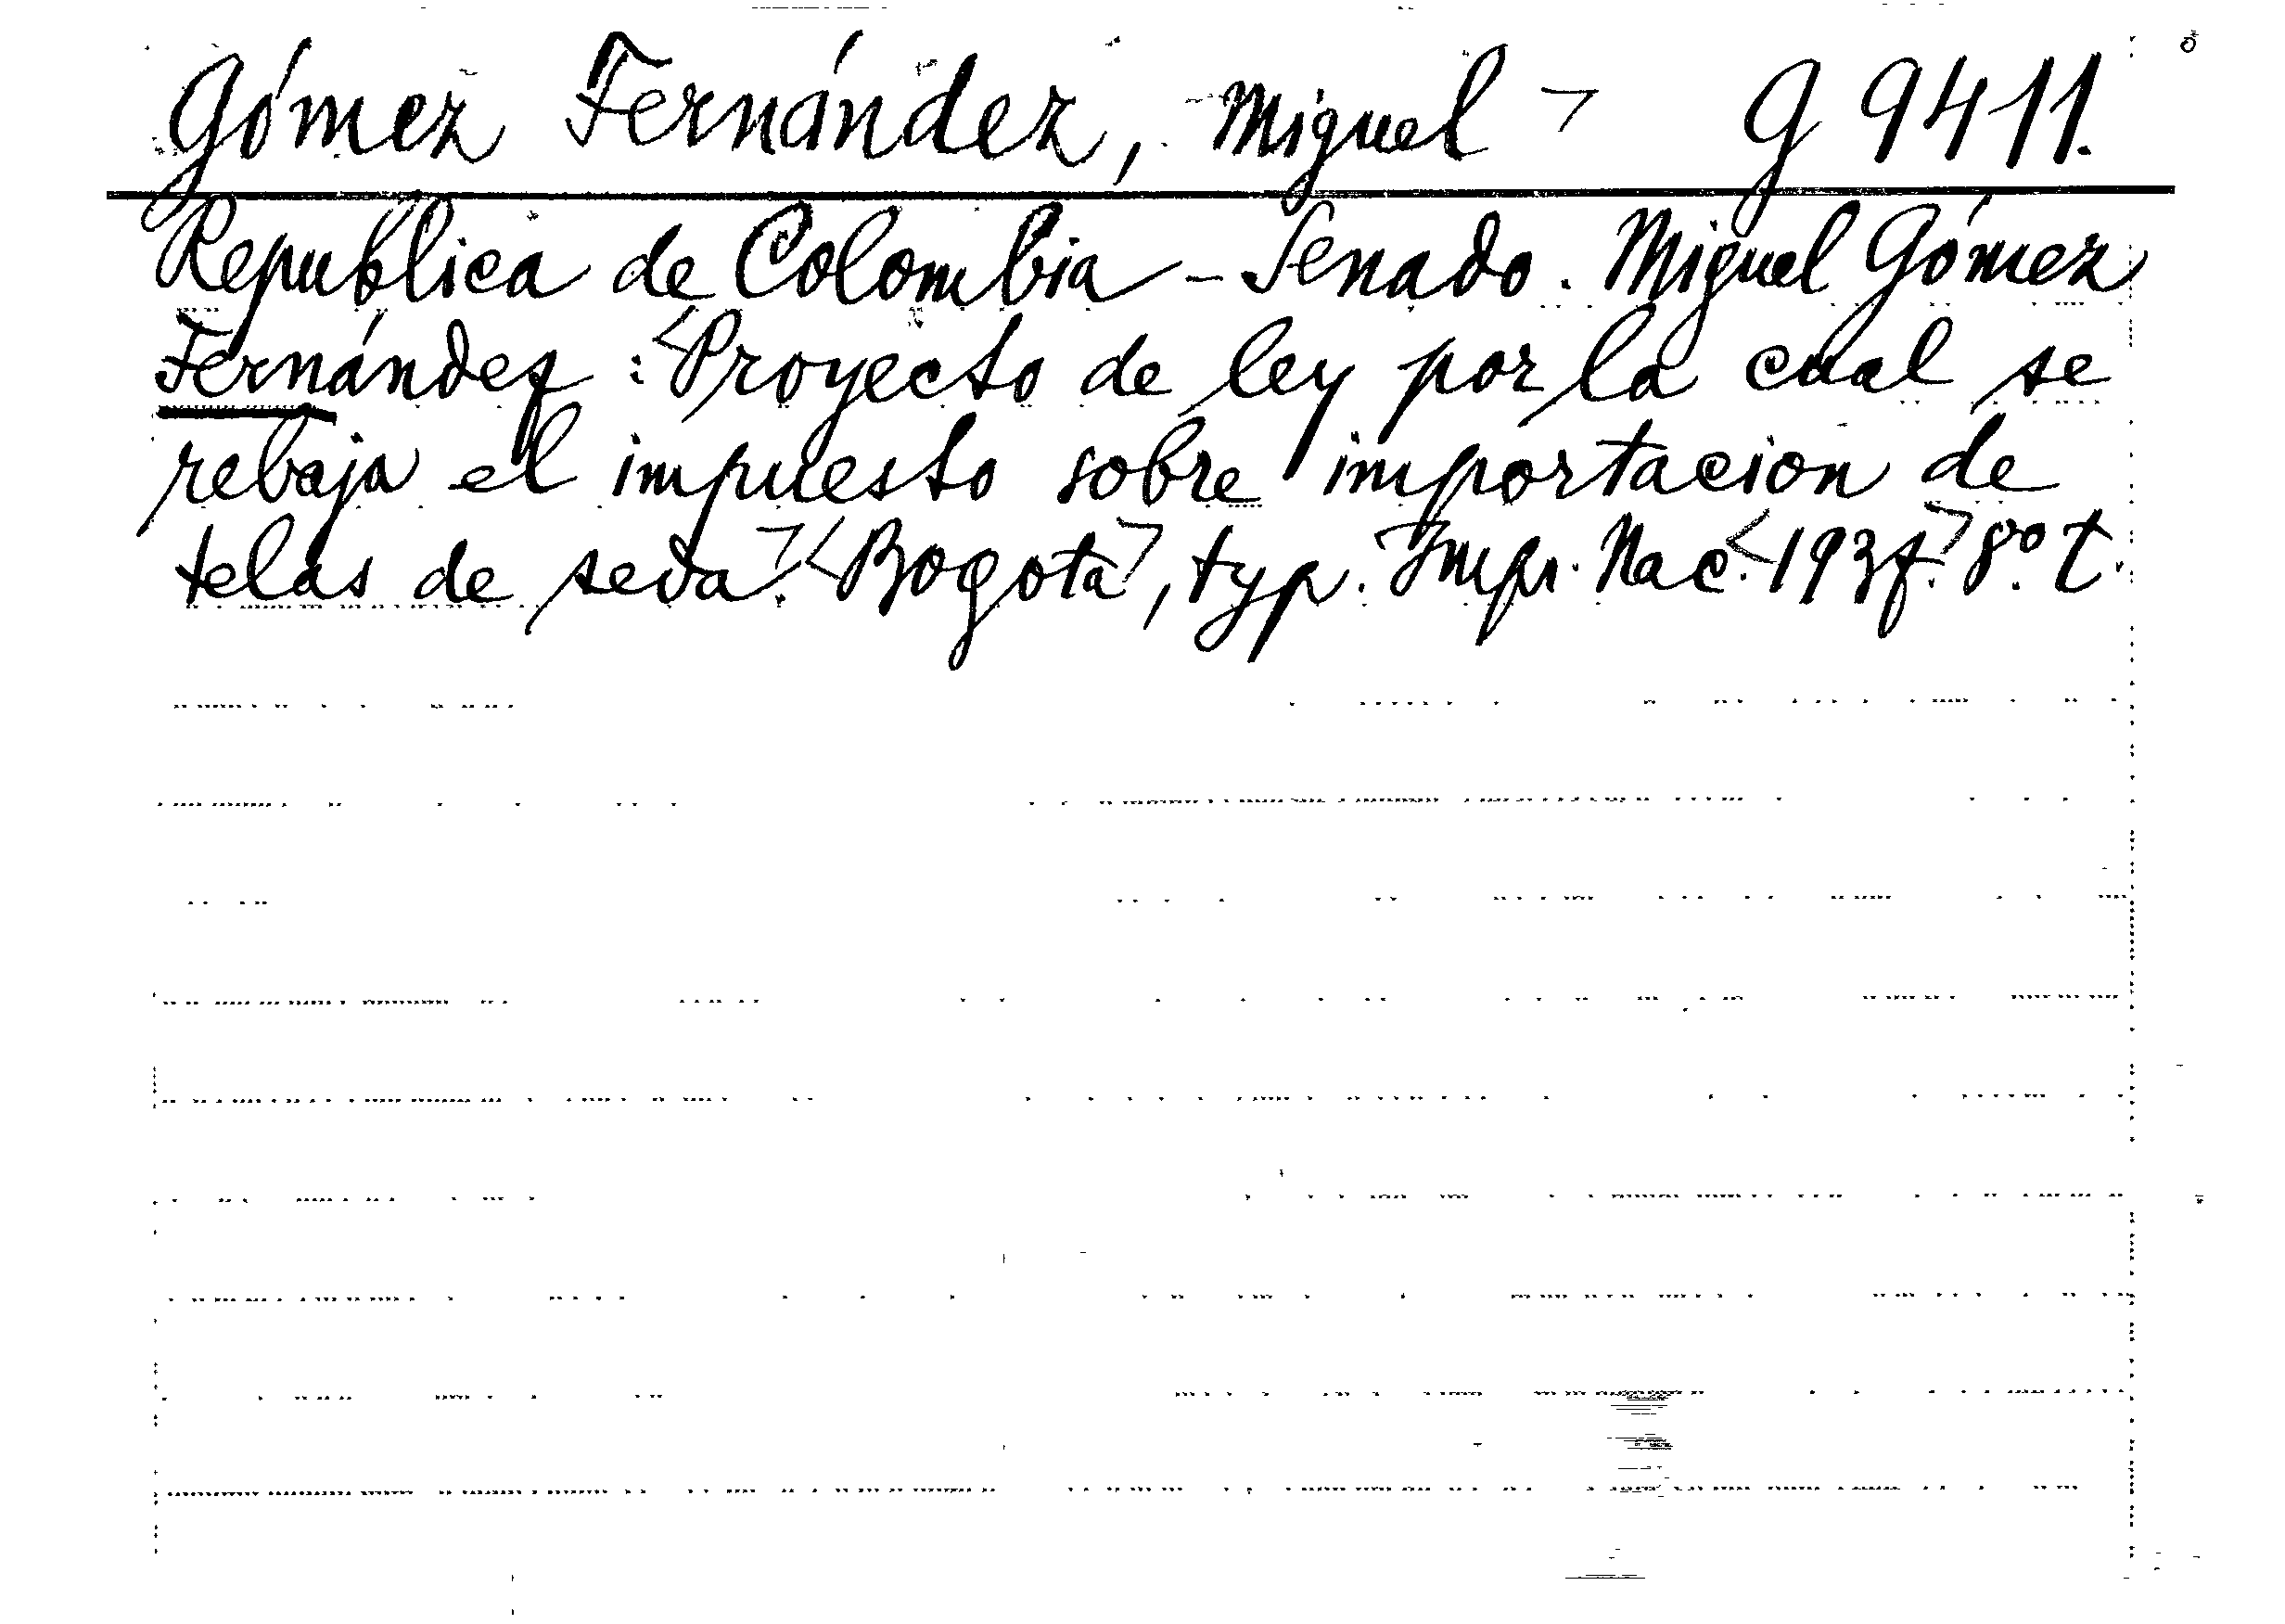 Gómez Fernández, Miguel ¬ G 9411.
Republica de Colombia - Senado. Miguel Gómez
Fernández : <Proyecto de ley por la cual se
rebaja el impuesto sobre importacion de
telas de seda.> <Bogota>, typ. Impr. Nac. <1937.> 8º. t.